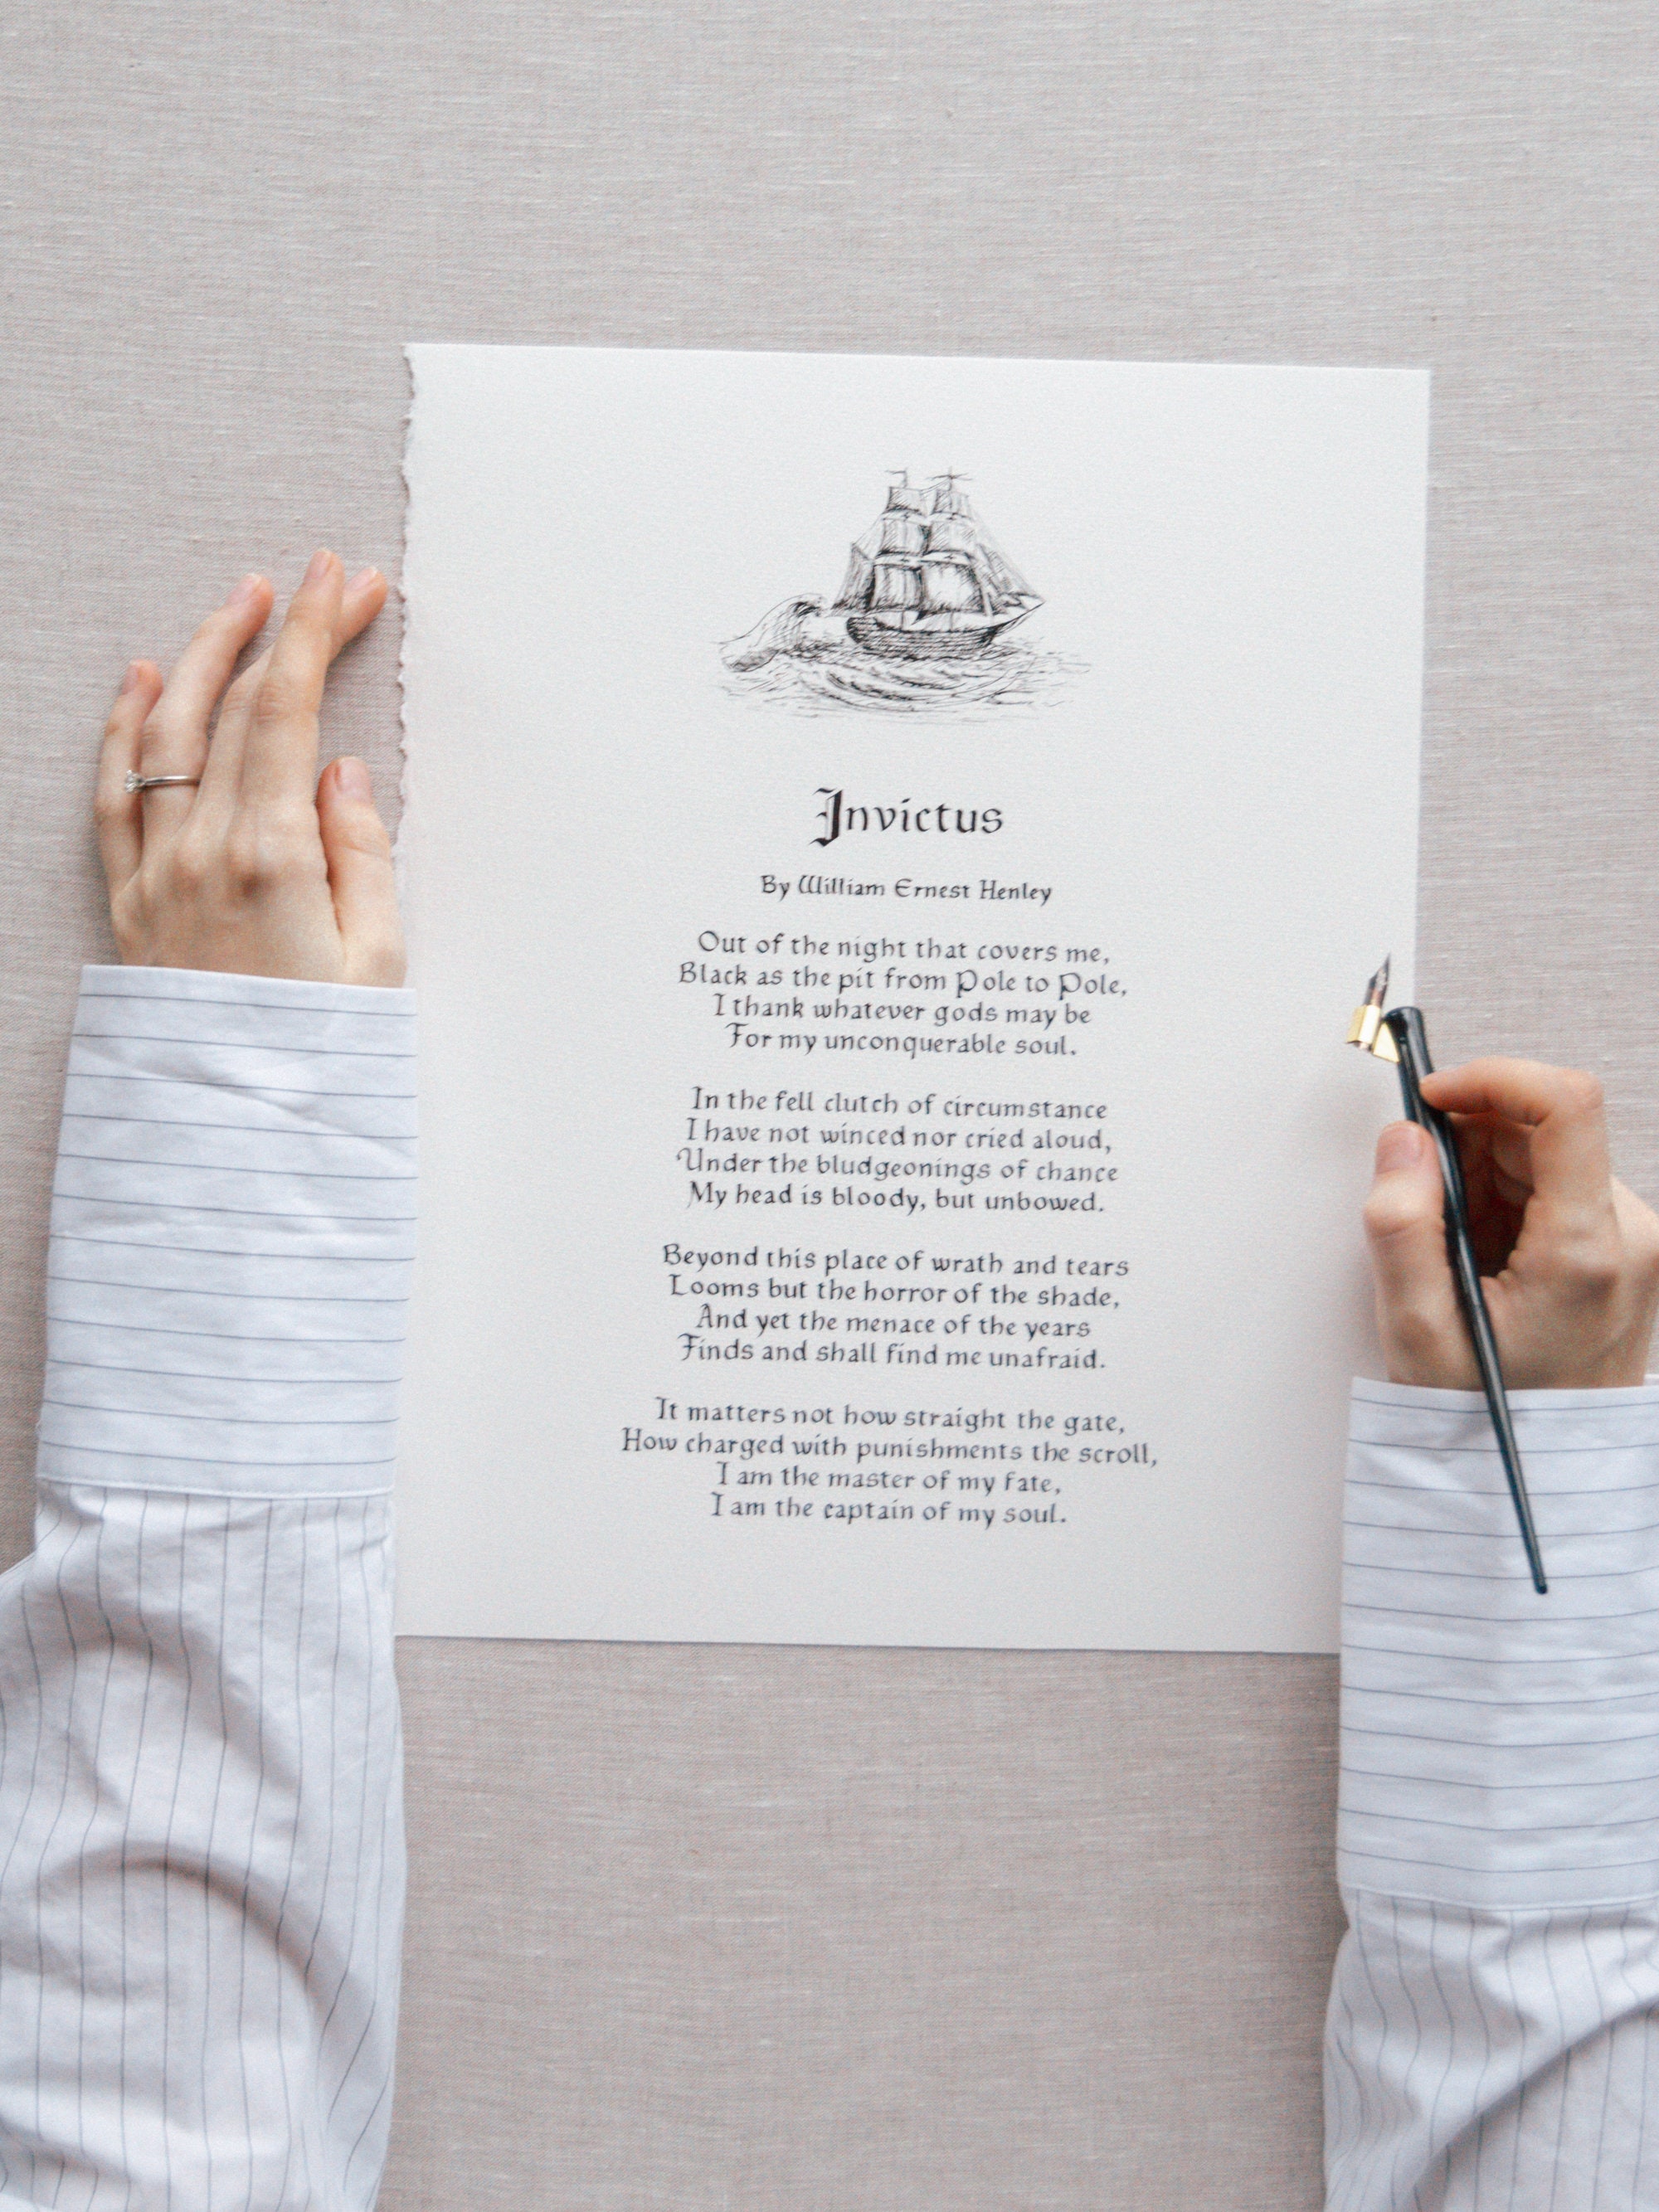 Invictus
By William Ernest Henley
Out of the night that covers me,
Black as the pit from Pole to Pole,
I thank whatever gods may be
For my unconquerable soul.
In the fell clutch of circumstance
I have not winced nor cried aloud,
Under the bludgeonings of chance
My head is bloody, but unbowed.
Beyond this place of wrath and tears
Looms but the horror of the shade,
And yet the menace of the years
Finds and shall find me unafraid.
It matters not how straight the gate,
How charged with punishments the scroll,
I am the master of my fate,
I am the captain of my soul.